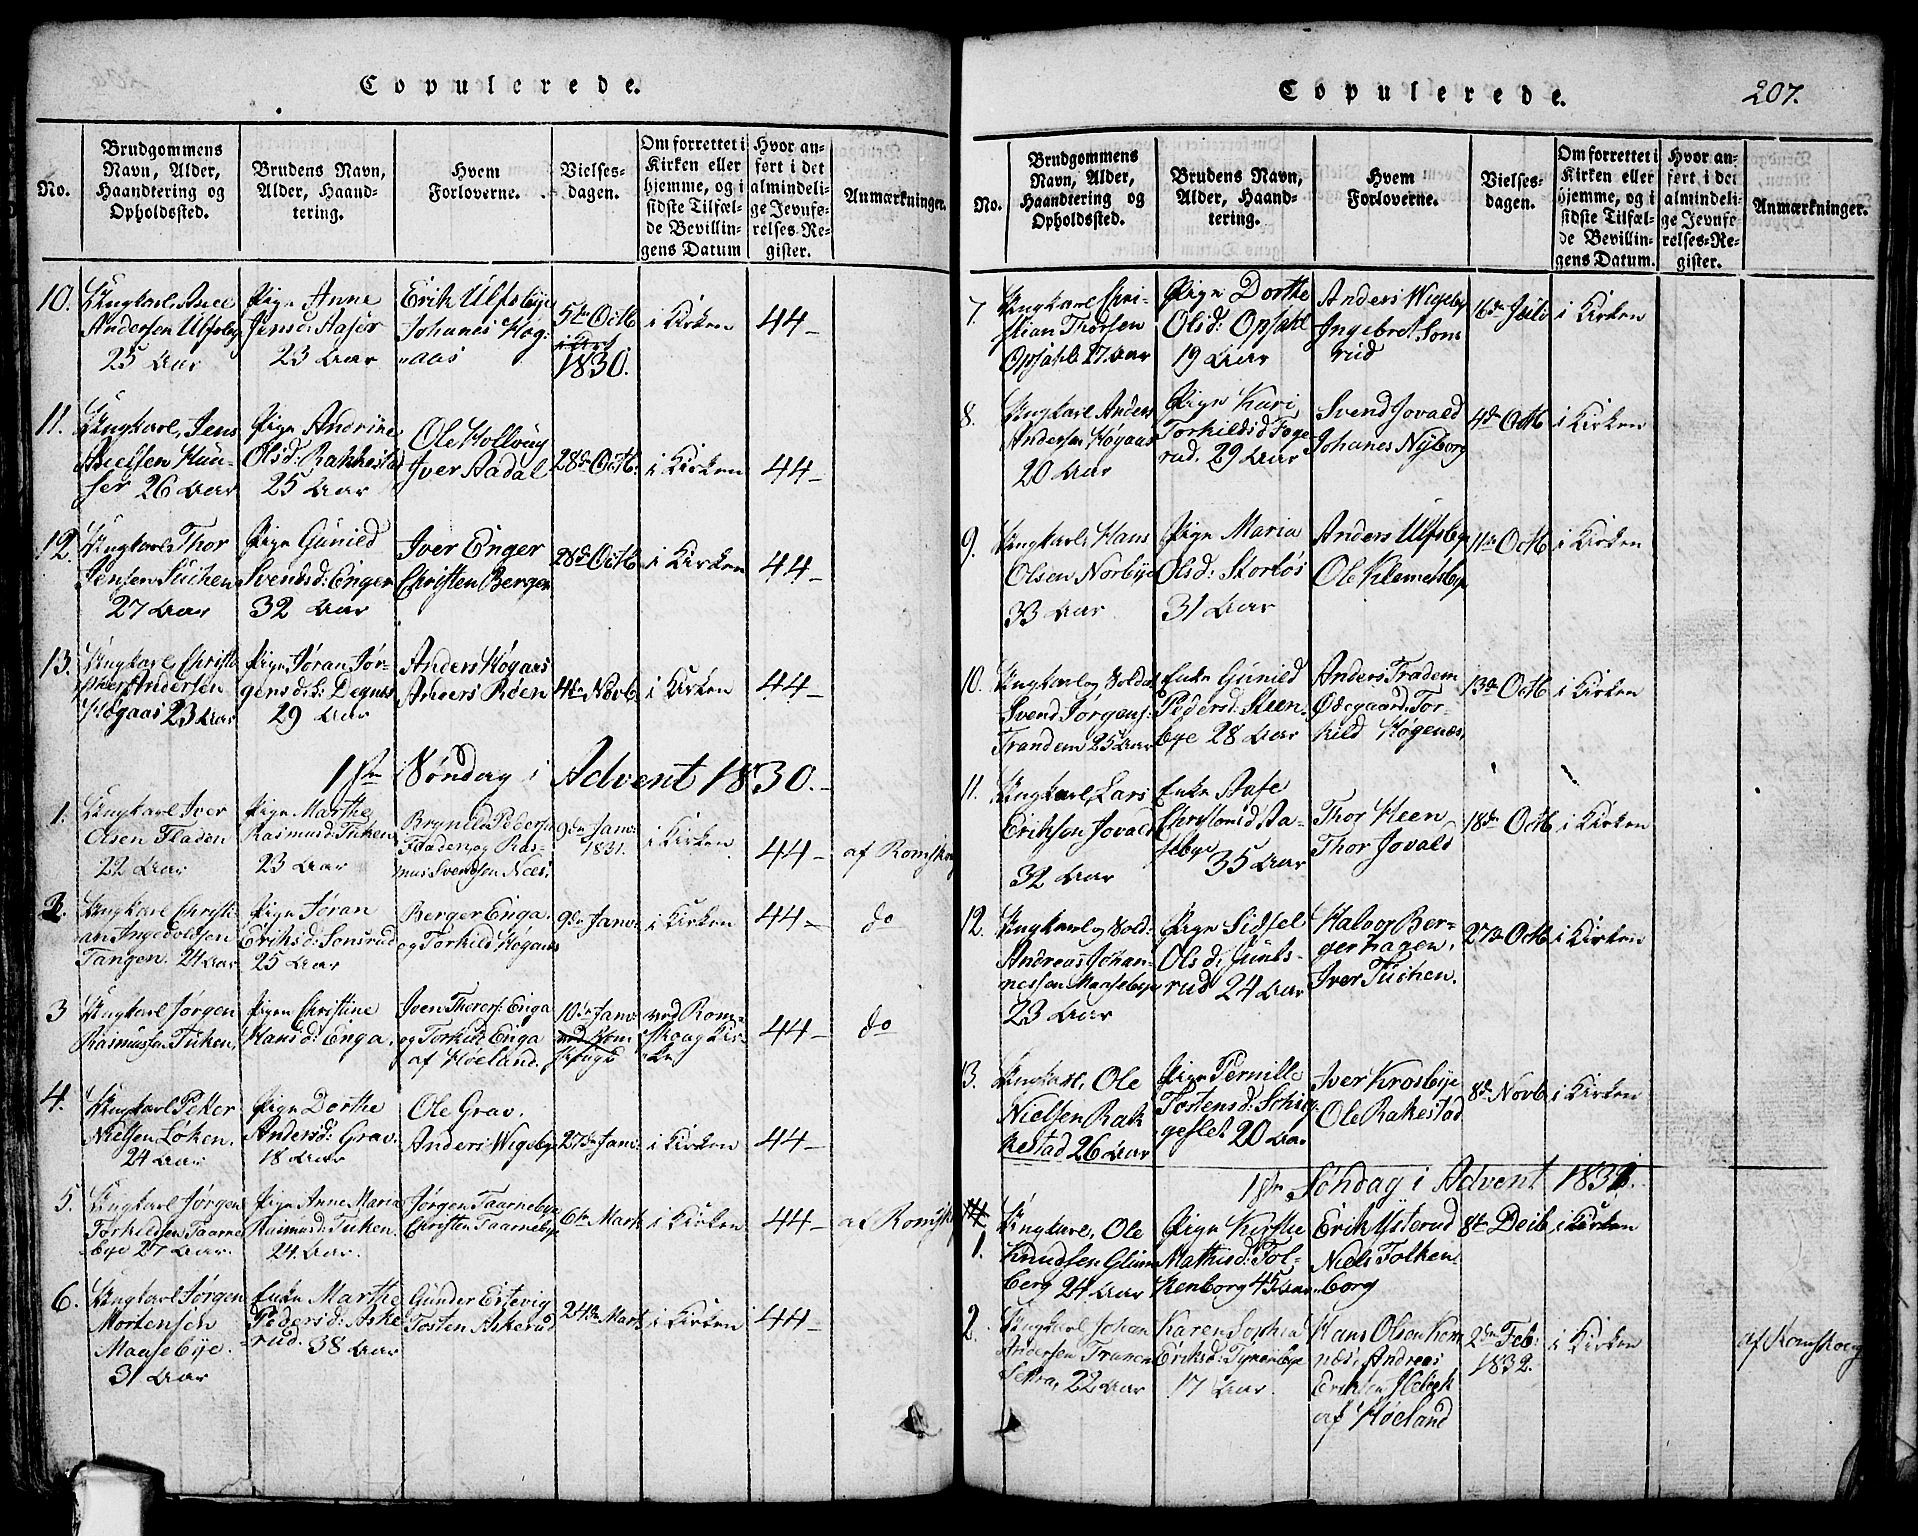 Copulerede.
No.
Brudgommens Navn, Alder, Haandtering og Opholdssted.
Brudens Navn, Alder, Haandtering.
Hvem Forloverne.
Vielsesdagen.
Om forrettet i Kirken eller hjemme, og i sidste Tilfælde Bevillingens Datum
Hvor anført i det almindelige Jevnførelses-Register.
Anmærkninger.
10. Ungkarl
Andersen Ulfsby
25 Aar
Pige Anne
Jensd: Aaser
23 Aar
Erik Ulfsbye
Johanes Høg:
aas
5te Octb
1830.
i Kirken
44-
11. Ungkarl, Jens
Nielsen Hau-
ser 26 Aar
Pige Andrine
Olsd: Rakkesta
25 Aar
Ole Kollbug
Iver Aadal
28de Octb:
i Kirken
44-
12. Ungkarl Thor
Jensen Tuchen
27 Aar
Pige Gunild
Svensd: Enger
32 Aar
Iver Enger
Christen Bergen
28de Octb
i Kirken
44-
13. Ungkarl, Christo
pher Andersen
Høgaas 23 Aar
Pige Jøran Jør-
gensd: Degnes
29 Aar
Anders Høgaas
Anders Røen
4de Novb.
i Kirken
44-
1ste Søndag i Advent 1830.
1. Ungkarl Iver
Olsen Fladen
22 Aar
Pige Marthe
Rasmusd: Tuken
23 Aar
Brynild Pedersen
Fladen og Ras-
mus Svendsen Næs,
9de Janv:
1831.
i Kirken
44-
af Romskog
2. Ungkarl Christi-
an Ingevoldsen
Tangen. 24 Aar
Pige Jøran
Eriksd: Sonsrud
25 Aar
Berger Enga.
og Torkild Høgaas
9de Janv:
i Kirken
44-
do
3 Ungkarl Jørgen
Rasmussen Tuken,
Pigen Christine
Hansd: Enga.
Iven Thorers: Enga
og Torkild Enga
af Høeland.
10de Janv
ved Rom-
skoug Kir-
ke
44-
do
4. Ungkarl Petter
Nielsen Løken.
24 Aar
Pige Dorthe
Andersd: Grav.
18 Aar
Ole Grav.
Anders Wigebye
27de Janv:
i Kirken
44-
5. Ungkarl Jørgen
Torkildsen Taarne
bye 27 Aar.
Pige Anne Maria
Rasmusd: Tuken.
24 Aar.
Jørgen Taarnebye
Christen Taarnebye
6te Mart
i Kirken
44-
af Romsk
6. Ungkarl Jørgen
Mortensen
Maasebye.
31 Aar
Enke Marthe
Pedersd: Aske
rud. 38 Aar
Gunder Estevig
Tosten Askerud
24de Mart
i Kirken
44-
Copulerede.
207.
No.
Brudgommens Navn, Alder, Haandtering og Opholdssted.
Brudens Navn, Alder, Haandtering.
Hvem Forloverne.
Vielsesdagen.
Om forrettet i Kirken eller hjemme, og i sidste Tilfælde Bevillingens Datum.
Hvor anført i det almindelige Jevnførelses-Register.
Anmærkninger.
7. Ungkarl Chri-
stian Thorsen
Opsahl 27 Aar
Pige Dorthe
Olsd: Opsahl
19 Aar
Anders Wigeby
Ingebret Sons
rud
16de Juli
i Kirken
8. Ungkarl Anders
Andersen Høgaas
20 Aar
Pige Kari
Torkildsd Foge
rud. 29 Aar
Svend Jovald
Johanes Nyborg
4de Octb
i Kirken
9. Ungkarl, Hans
Olsen Norbye
33 Aar
Pige Maria
Olsd: Skorkøs
31 Aar
Anders Ulfsbye
Ole Klemetsbye
11te Octb
i Kirken
10. Ungkarl og Soldat
Svend Jørgens:
Trandem 25 Aar
Enke Gunild
Pedersd: Steen-
bye 28 Aar
Anders Trandem
Ødegaard, Tor-
kild Høgenæs,
13de Octb
i Kirken
11. Ungkarl, Lars
Eriksen Jovald
32 Aar
Enke Aase
Christensd Aa-
sebye
35 Aar
Thor Heen
Thor Jovald
18de Octb
i Kirken
12. Ungkarl og Sold:
Andreas Johan-
nessen Maasebye
23 Aar
Pige Sidsel
Olsd: Gunds-
rud 24 Aar
Halvor Ber-
gerhagen,
Iver Tuchen.
27de Octb
i Kirken
13. Ungkarl, Ole
Nielsen Rak
kestad 26 Aar
Pige Pernille
Tostensd: Schig-
geslet 20 Aar
Iver Krosbye
Ole Rakestad
8de Novb
i Kirken
1ste Søndag i Advent 1831.
1. Ungkarl, Ole
Knudsen Glim
berg 24 Aar
Pige Kirstie
Mathisd: Fol-
kenborg 45 Aar
Erik Ysterud
Niels Folken-
borg
8de Decb.
i Kirken
2. Ungkarl Johan
Andersen Tranen
Setra, 22 Aar
Karen Sophia
Eriksd: Tyrenbye
17 Aar.
Hans Olsen Kom
næs, Andreas
Eriksen Ilebek
af Høeland
2den Feb:
1832.
i Kirken
af Romskoeg